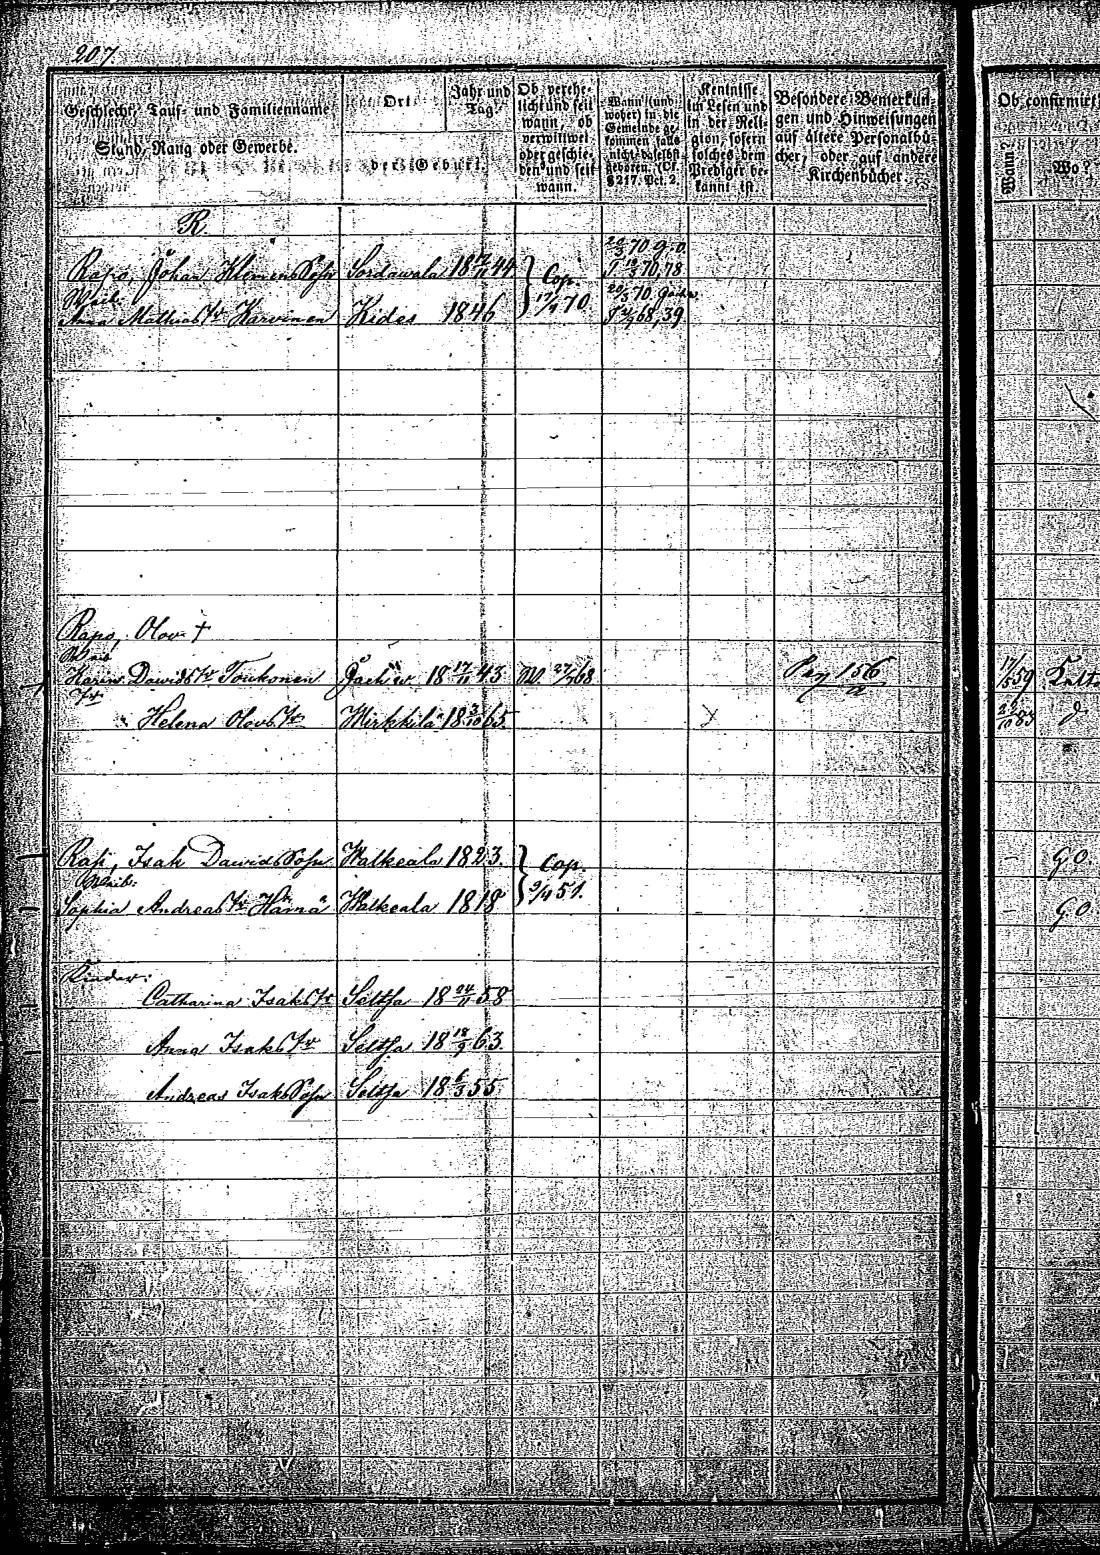 207.
Geschlecht, Tauf- und Familienname,
Stand, Rang oder Gewerbe.
Ort
Jahr und Tag
der Geburt.
Ob verehe-
licht und seit
wann, ob
verwittwet
oder geschie-
den und seit
wann.
Wann (und
woher) in die
Gemeinde ge-
kommen, falls
nicht daselbst
geboren.
§ 217. Pct. 2.
Kentnisse
im Lesen und
in der Reli-
gion, sofern
solches dem
Prediger be-
kannt ist.
Besondere Bemerkun-
gen und Hinweisungen
auf ältere Personalbü-
cher, oder auf andere
Kirchenbücher.
Ob confirmirt
Wann?
Wo?
R
Rapo, Johan Klemens Sohn Sordawala 18 12/11 44 Cop. 17/4 70
Weib:
Anna Mathias Tr Karvinen Kides 1846
Rapo, Olov †
Weib
Karin Dawids Tr Toukonen 18 17/11 43 W. 27/7 68 Pag 156 17/6 59
Tr
Helena Olovs Tr Mirkkilä 18 3/10 65
Rapi, Isak Dawids Sohn Walkeala 1823. Cop. 9/4 51. – G.O.
Weib:
Sophia Andreas Tr Hämä Walkeala 1818 – G.O.
Kinder:
Catharina Isaks Tr Seltsa 18 24/11 58
Anna Isaks Tr Seltsa 18 18/9 63
Andreas Isaks Sohn Seltsa 18 6/3 55